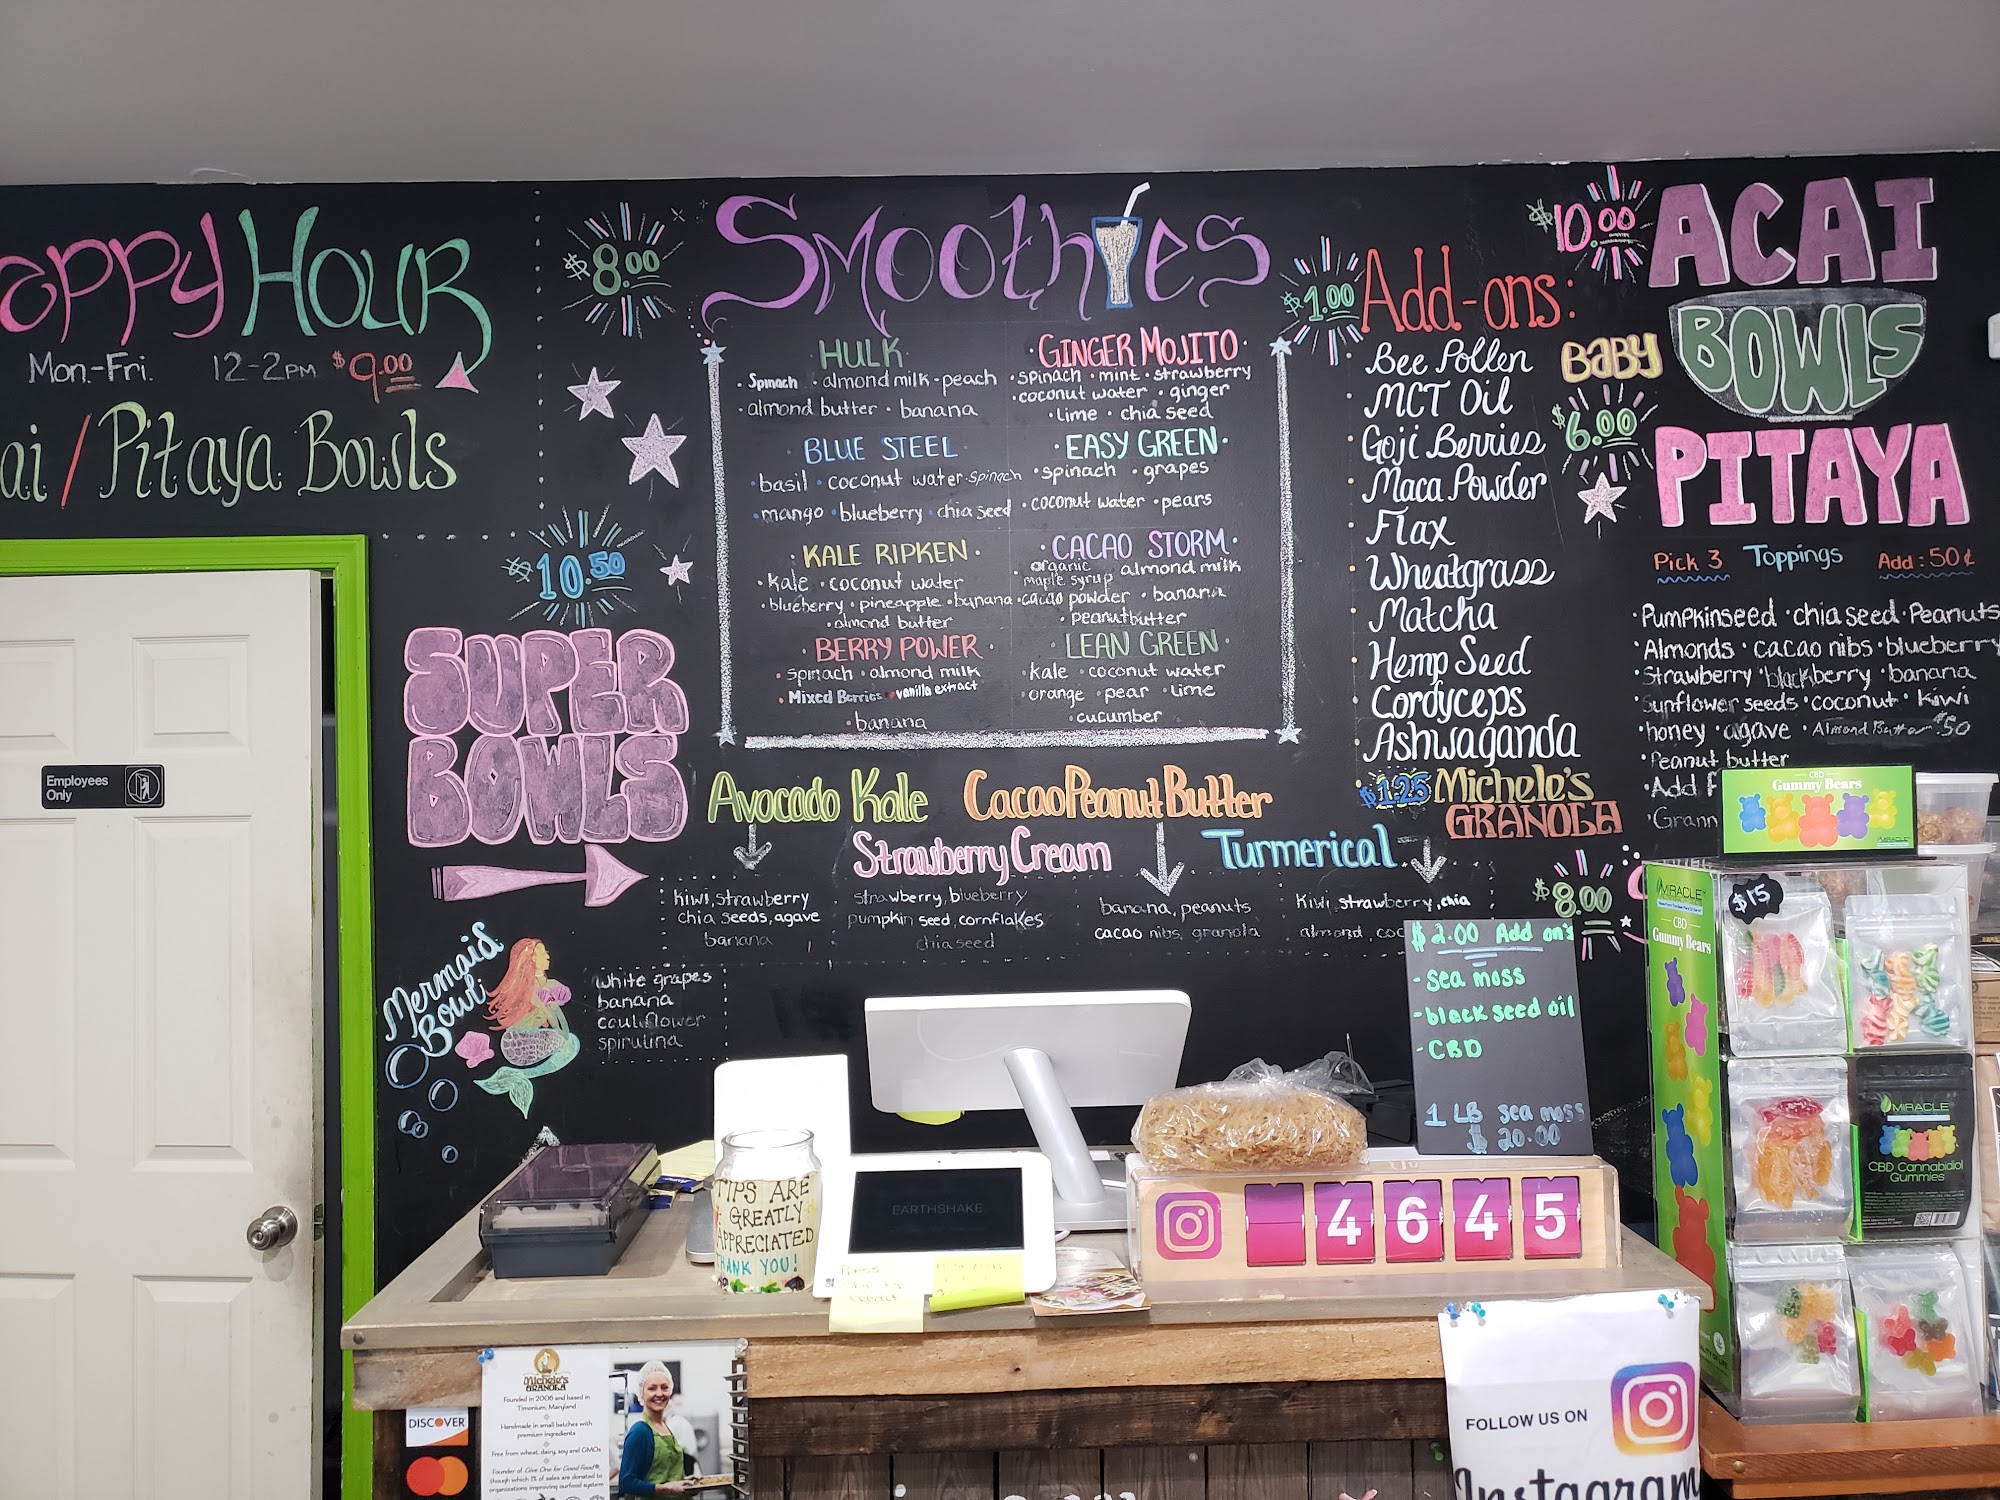 appy Hour
Mon.-Fri. 12-2PM $9.00
ai / Pitaya Bowls
$8.00
Smoothies
HULK
· Spinach · almond milk · peach
· almond butter · banana
BLUE STEEL ·
· basil · coconut water · spinach
· mango · blueberry · chia seed
KALE RIPKEN ·
· kale · coconut water
· blueberry · pineapple · banana
· almond butter
· BERRY POWER ·
· spinach · almond milk
· Mixed Berries · vanilla extract
· banana
· GINGER MOJITO ·
· spinach · mint · strawberry
· coconut water · ginger
· lime · chia seed
· EASY GREEN ·
· spinach · grapes
· coconut water · pears
· CACAO STORM ·
· organic maple syrup · almond milk
· cacao powder · banana
· peanutbutter
LEAN GREEN ·
· kale · coconut water
· orange · pear · lime
· cucumber
$1.00 Add-ons:
· Bee Pollen
· MCT Oil
· Goji Berries
· Maca Powder
· Flax
· Wheatgrass
· Matcha
· Hemp Seed
· Cordyceps
· Ashwaganda
$1.25 Michele's
GRANOLA
$10.00
ACAI
BOWLS
BABY
$6.00
PITAYA
Pick 3 Toppings Add: 50¢
· Pumpkinseed · chia seed · Peanuts
· Almonds · cacao nibs · blueberry
· Strawberry · blackberry · banana
· Sunflower seeds · coconut · kiwi
· honey · agave · Almond Butter $.50
· Peanut butter
· Add
· Grann
$8.00
$10.50
SUPER
BOWLS
Avocado Kale
kiwi, strawberry
chia seeds, agave
banana
Strawberry Cream
strawberry, blueberry
pumpkin seed, cornflakes
chia seed
Cacao Peanut Butter
banana, peanuts
cacao nibs, granola
Turmerical
kiwi, strawberry, chia
almond, coc
Mermaid
Bowl
white grapes
banana
cauliflower
spirulina
Employees
Only
$2.00 Add on's
- sea moss
- black seed oil
- CBD
1 LB sea moss
$20.00
CBD
Gummy Bears
MIRACLE
MIRACLE
CBD
Gummy Bears
$15
MIRACLE
CBD CANNABIDIOL
GUMMIES
TIPS ARE
GREATLY
APPRECIATED
THANK YOU!
EARTHSHAKE
4645
DISCOVER
Michele's
GRANOLA
Founded in 2006 and based in
Timonium, Maryland
Handmade in small batches with
premium ingredients
Free from wheat, dairy, soy and GMOs
Founder of Give One for Good Food®,
through which 1% of sales are donated to
organizations improving our food system
FOLLOW US ON
Instagram